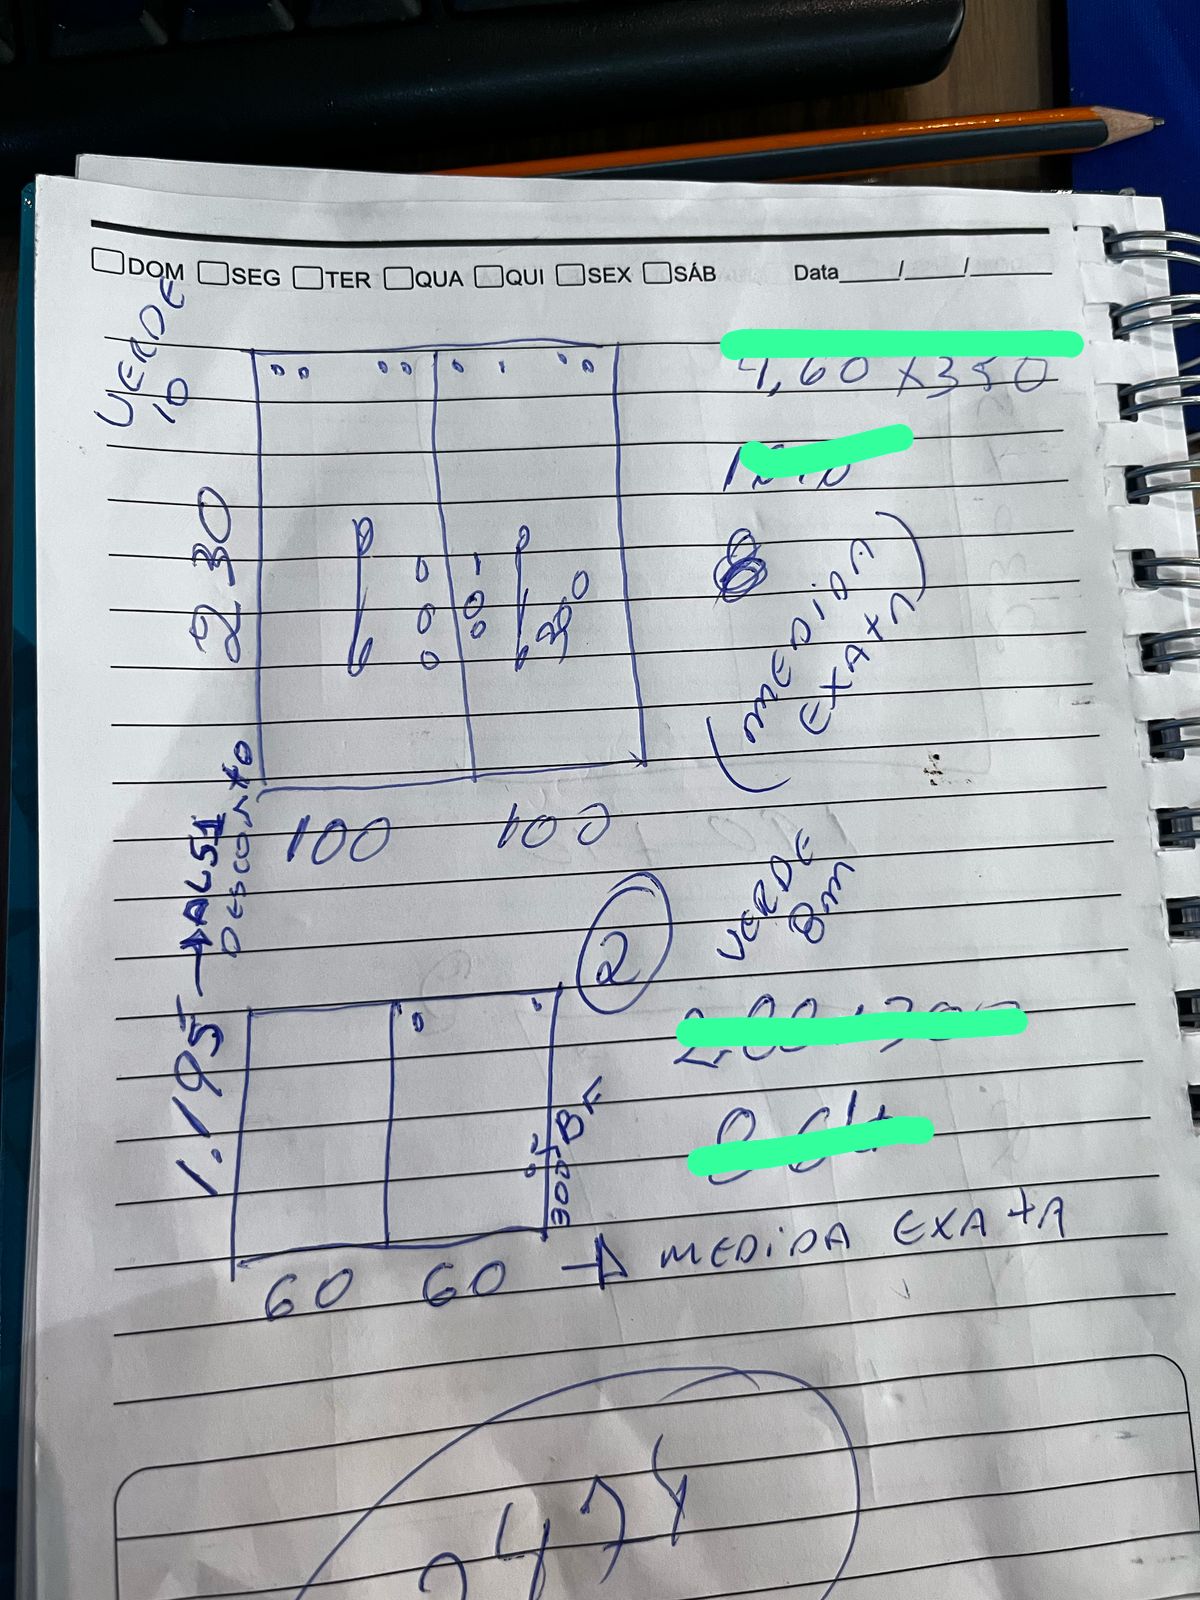 DOM SEG TER QUA QUI SEX SÁB Data___/___/___
VERDE
10
4,60 x 350
230
(MEDIDA
EXATA)
100 100
1.195 → AL51
DESCONTO
2
VERDE
8m
300
BF
60 60 → MEDIDA EXATA
2474